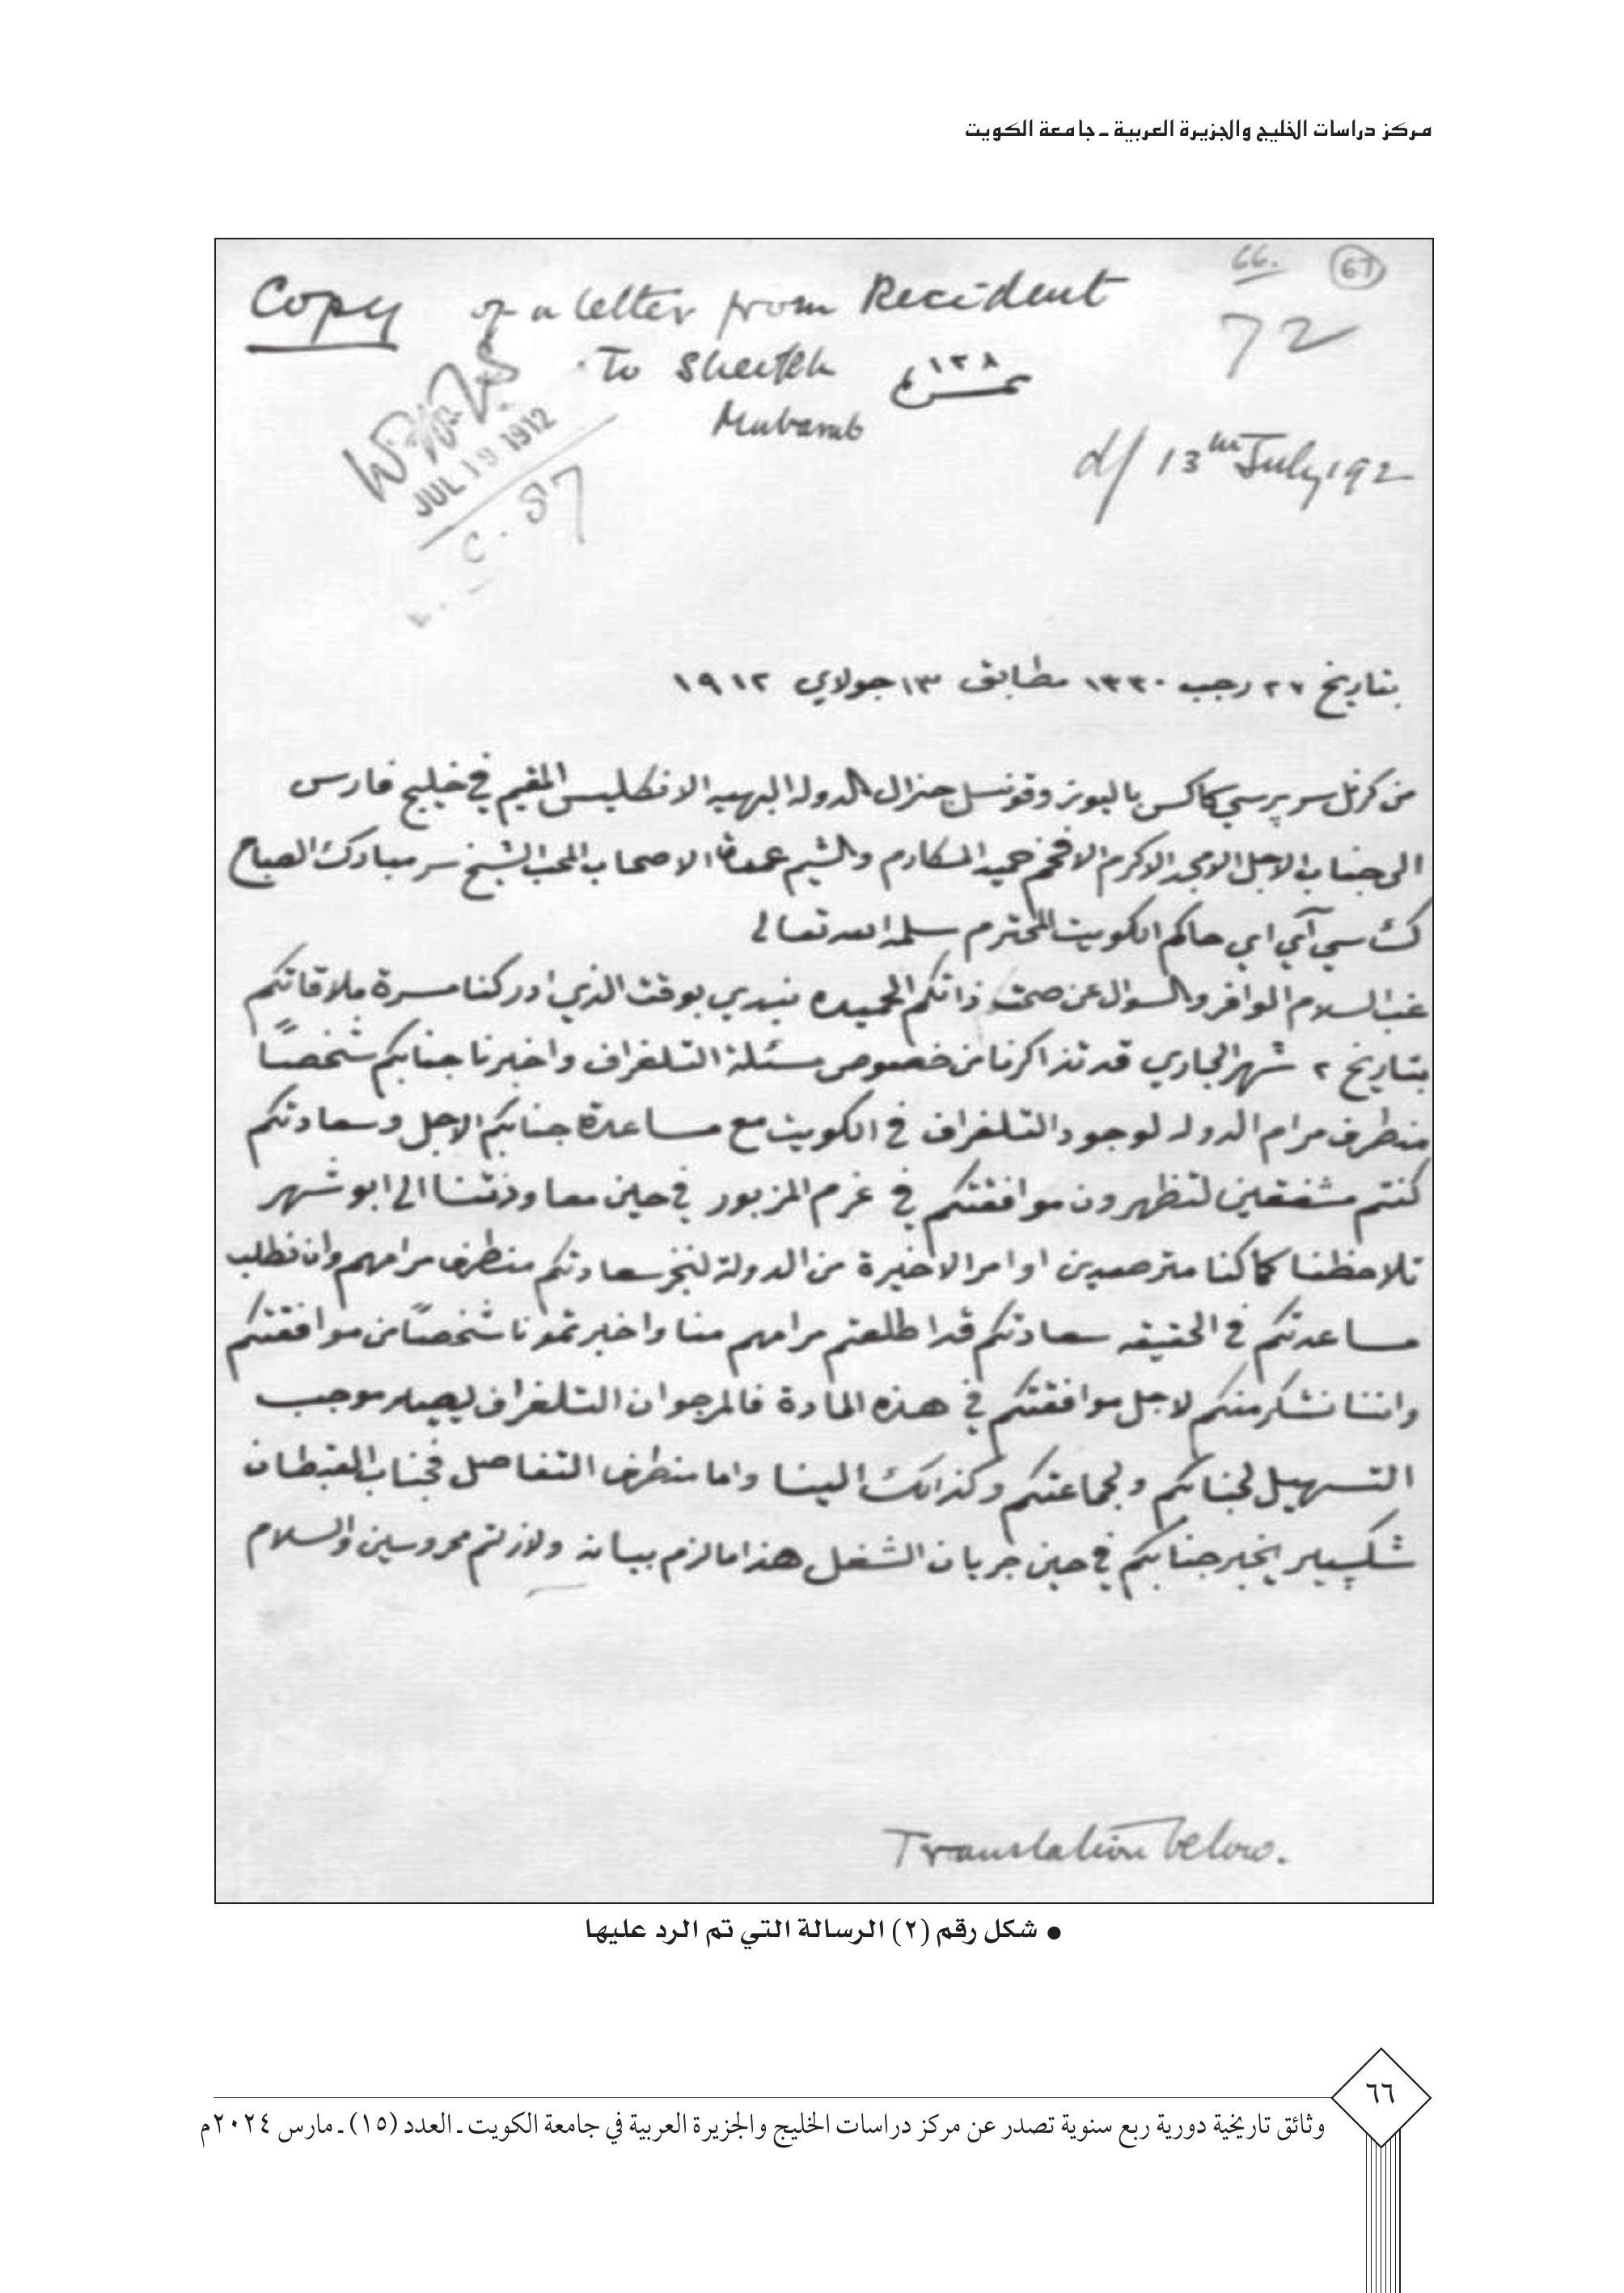 مركز دراسات الخليج والجزيرة العربية ـ جامعة الكويت
66. 67
Copy of a letter from Recident
72
To Sheikh ١٢٨
Mubarak
d/ 13th July 192
JUL 19 1912
C. 87
بتاريخ ٢٧ رجب ١٣٣٠ مطابق ١٣ جولاي ١٩١٢
من كرنل سر پرسي كاكس باليوز وقونسل جنرال الدوله البهيه الانكليس المقيم في خليج فارس
الى جناب الاجل الامجد الاكرم الافخم حميد المكارم والشيم عمدة الاصحاب المحب الشيخ سر مبارك الصباح
ك سي آي اي حاكم الكويت المحترم سلمه الله تعالى
غب السلام الوافر والسوال عن صحت ذاتكم الحميده نبدي بوقت الذي ادركنا مسرة ملاقاتكم
بتاريخ ٢ شهر الجاري قد تذاكرنا من خصوص مسئلة التلغراف واخبرنا جنابكم شخصاً
منطرف مرام الدوله لوجود التلغراف في الكويت مع مساعدة جنابكم الاجل وسعادتكم
كنتم مشفقين لتظهرون موافقتكم في غرم المزبور في حين معاودتنا الى ابوشهر
تلاحظنا كما كنا مترصدين اوامر الاخيرة من الدولة لنخبر سعادتكم منطرف مرامهم وان نطلب
مساعدتكم في الحقيقه سعادتكم قد اطلعتم مرامهم منا واخبرتمونا شخصاً من موافقتكم
واننا نشكر منكم لاجل موافقتكم في هذه المادة فالمرجو ان التلغراف ليصير موجب
التسهيل لجنابكم ولجماعتكم وكذالك الينا واما منطرف التفاصل فجناب القبطان
شكسپير يخبر جنابكم في حين جريان الشغل هذا ما لزم بيانه ولازلتم محروسين والسلام
Translation below.
● شكل رقم (٢) الرسالة التي تم الرد عليها
٦٦
وثائق تاريخية دورية ربع سنوية تصدر عن مركز دراسات الخليج والجزيرة العربية في جامعة الكويت ـ العدد (١٥) ـ مارس ٢٠٢٤م